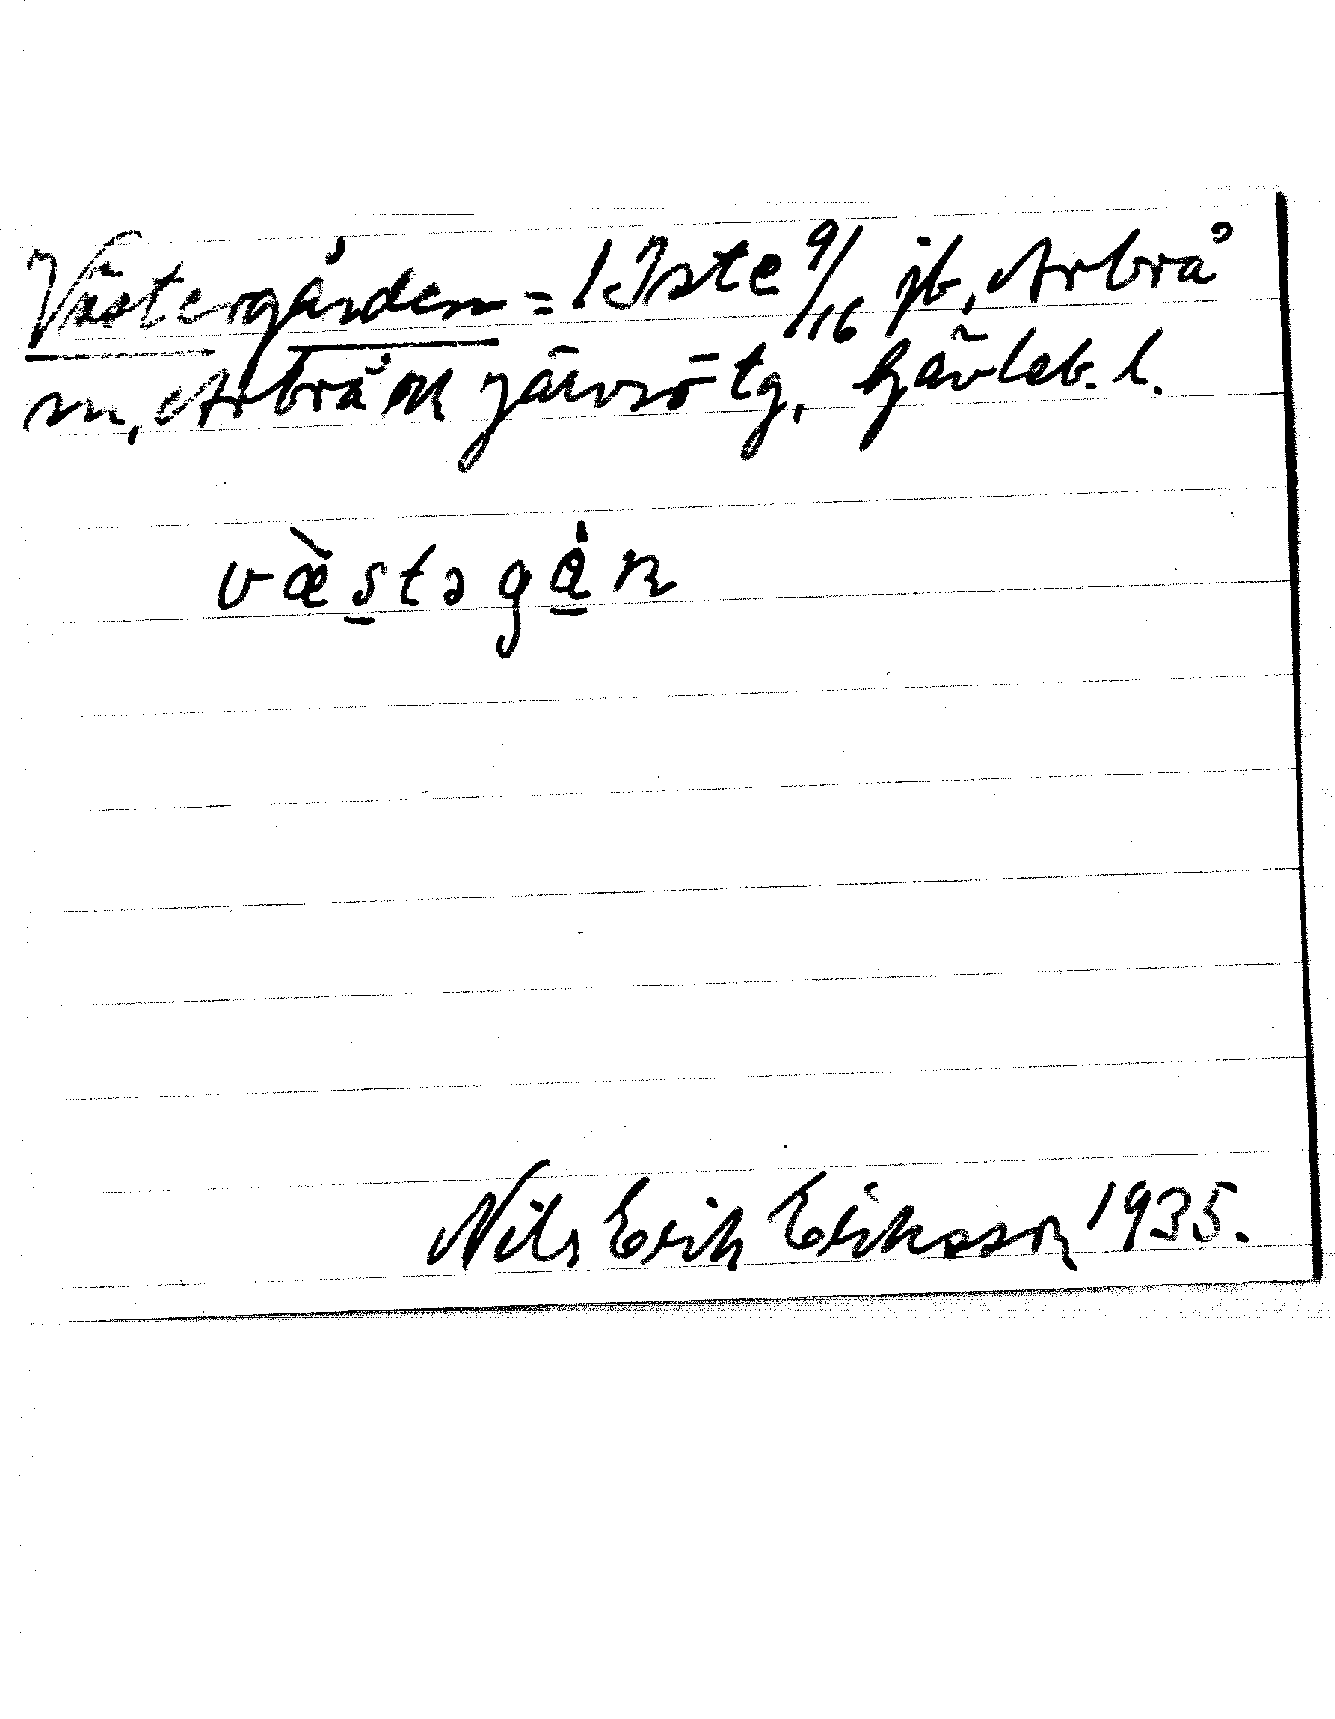 Västergården = 1 Iste 9/16 jb, Arbrå
sn, Arbrå o Järvsö tg, Gävleb. l.
væ̀stəgå̇n
Nils Erik Eriksson 1935.